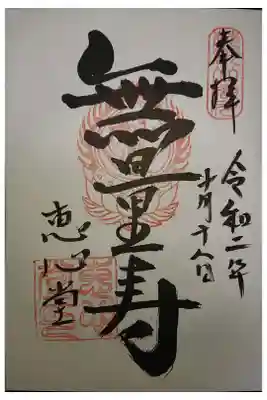 奉拝
令和二年
十月十八日
無量寿
恵心堂